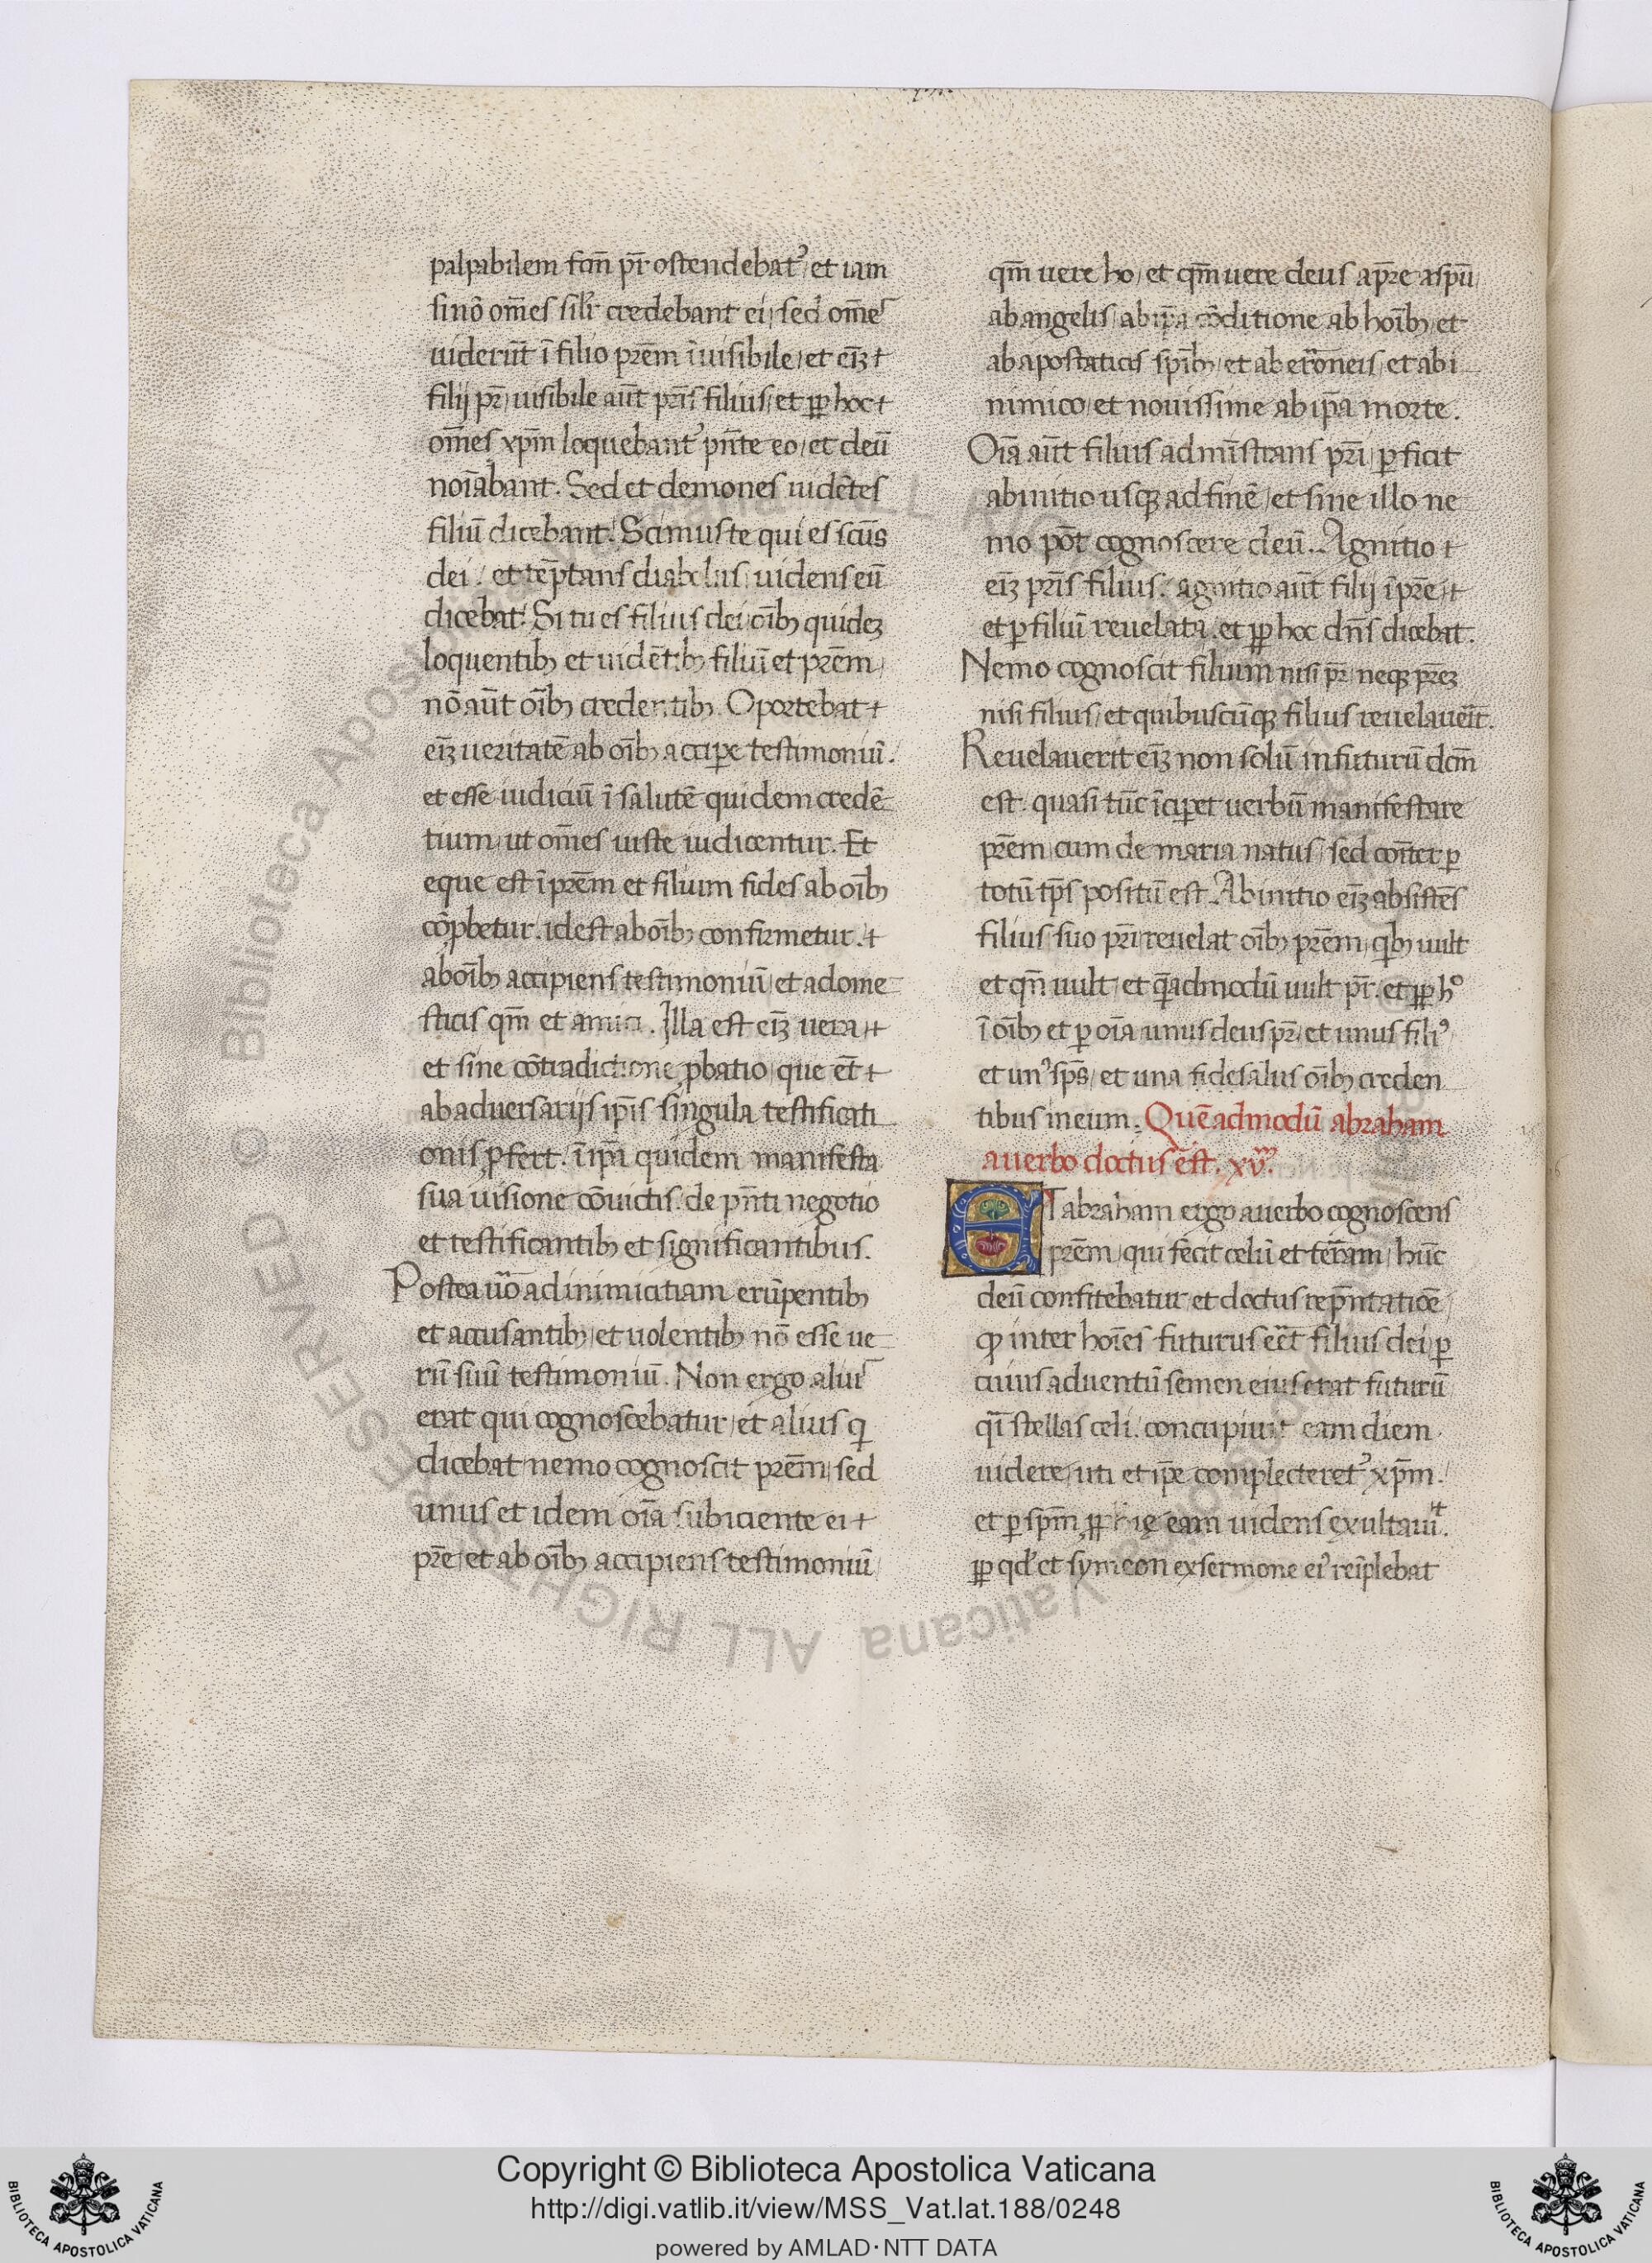 palpabilem fcm̄ pr̄ ostendebat᾽ et iam
sinō om̄es silr̄ credebant ei sed om̄es
uiderūt ī filio prēm īuisibile et eīȝ ⁊
filij pr̄ uisibile aūt prīs filius et ꝓp hoc ⁊
om̄es xpm̄ loquebant᾽ pn̄te eo et deū
noīabant. Sed et demones uidētes
filiū dicebant. Scimus te qui es scūs
dei. et tēptans diabolus uidens eū
dicebat. Si tu es filius dei oīb; quideȝ
loquentib; et uidētib; filiū et prēm
nō aūt oīb; credentib;. Oportebat ⁊
eīȝ ueritatē ab oīb; accipe testimoniū.
et esse iudiciū ī salutē quidem credē
tium ut om̄es iuste iudicentur. Et
eque est ī prēm et filium fides ab oīb;
cōꝓbetur. id est ab oīb; confirmetur. ⁊
ab oīb; accipiens testimoniū et a dome
sticis qm̄ et amici. Illa est eīȝ uera ⁊
et sine cōtradictione ꝓbatio que ēt ⁊
ab aduersarijs ipīs singula testificati
onis ꝓfert. ī ipā quidem manifesta
sua uisione cōuictis. de pn̄ti negotio
et testificantib; et significantibus.
Postea uō ad inimicitiam erūpentib;
et accusantib; et uolentib; nō esse ue
rū suū testimoniū. Non ergo alius
erat qui cognoscebatur et alius q
dicebat nemo cognoscit prēm sed
unus et idem oīa subiciente ei ⁊
prē et ab oīb; accipiens testimoniū
qm̄ uere ho et qm̄ uere deus a prē a spū
ab angelis ab ipā cōditione ab hoīb; et
ab apostaticis spīb; et ab erroneis et ab i
nimico et nouissime ab ipā morte.
Oīa aūt filius administrans prī ꝑficit
ab initio usq; ad finē et sine illo ne
mo pōt cognoscere deū. Agnitio ⁊
eīȝ prīs filius. agnitio aūt filij ī prē ⁊
et ꝑ filiū reuelata. et ꝓp hoc dn̄s dicebat.
Nemo cognoscit filium nisi pr̄ neq; prēȝ
nisi filius et quibuscūq; filius reuelauēit.
Reuelauerit eīȝ non solū in futurū dcm̄
est. quasi tūc īciꝑet uerbū manifestare
prēm cum de maria natus sed cōiter ꝑ
totū tp̄s positū est. Ab initio eīȝ absistēs
filius suo prī reuelat oīb; prēm qb; uult
et qn̄ uult et qēadmodū uult pr̄. et ꝓp hº
ī oīb; et ꝑ oīa unus deus pr̄ et unus fili᾽
et un᾽ sp̄s et una fidesalus oīb; creden
tibus in eum. Quēadmodū abraham
a uerbo doctus ēst. xv.
ET abraham ergo a uerbo cognoscens
prēm qui fecit celū et terram hūc
deū confitebatur et doctus repn̄tatiōe
ꝙ inter hoīes futurus eēt filius dei ꝑ
cuius aduentū semen eius erat futurū
qī stellas celi. concupiuit eam diem
uidere uti et ipē complecteret᾽ xpm̄.
et ꝑ spm̄ ꝓphīe eam uidens exultauit.
ꝓp qd᾽ et symeon ex sermone ei᾽ reīplebat
Copyright © Biblioteca Apostolica Vaticana
http://digi.vatlib.it/view/MSS_Vat.lat.188/0248
powered by AMLAD·NTT DATA
BIBLIOTECA APOSTOLICA VATICANA
BIBLIOTECA APOSTOLICA VATICANA